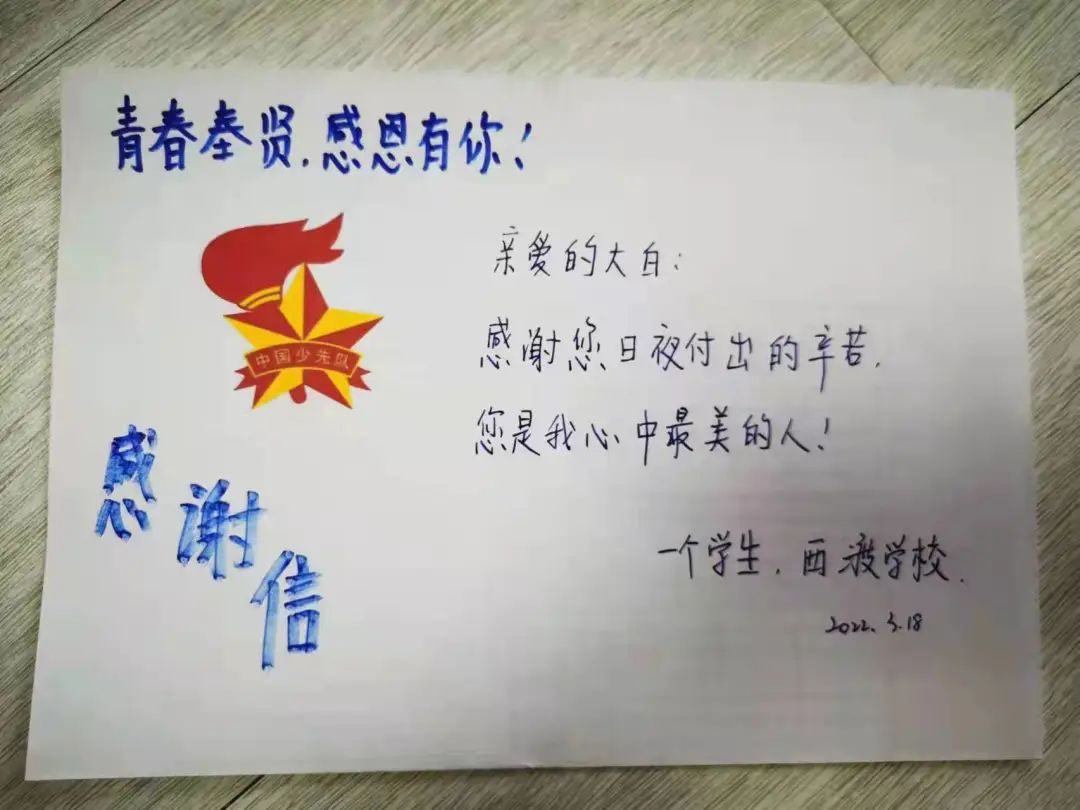 青春奉贤，感恩有你！
中国少先队
感谢信
亲爱的大白：
感谢您日夜付出的辛苦，
您是我心中最美的人！
一个学生，西渡学校.
2022.5.18